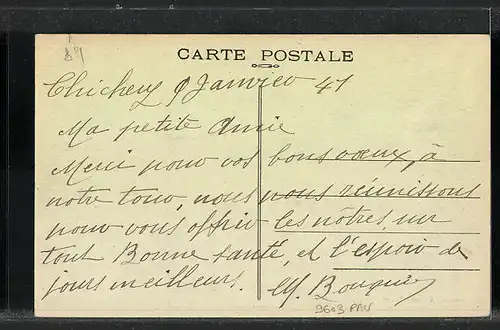 89
CARTE POSTALE
Chichery 9 Janvier 41
Ma petite Amie
Merci pour vos bons voeux, à
notre tour, nous nous réunissons
pour vous offrir les nôtres, sur
tout Bonne santé, et l'espoir de
jours meilleurs. M. Bouquin
9603 PAU